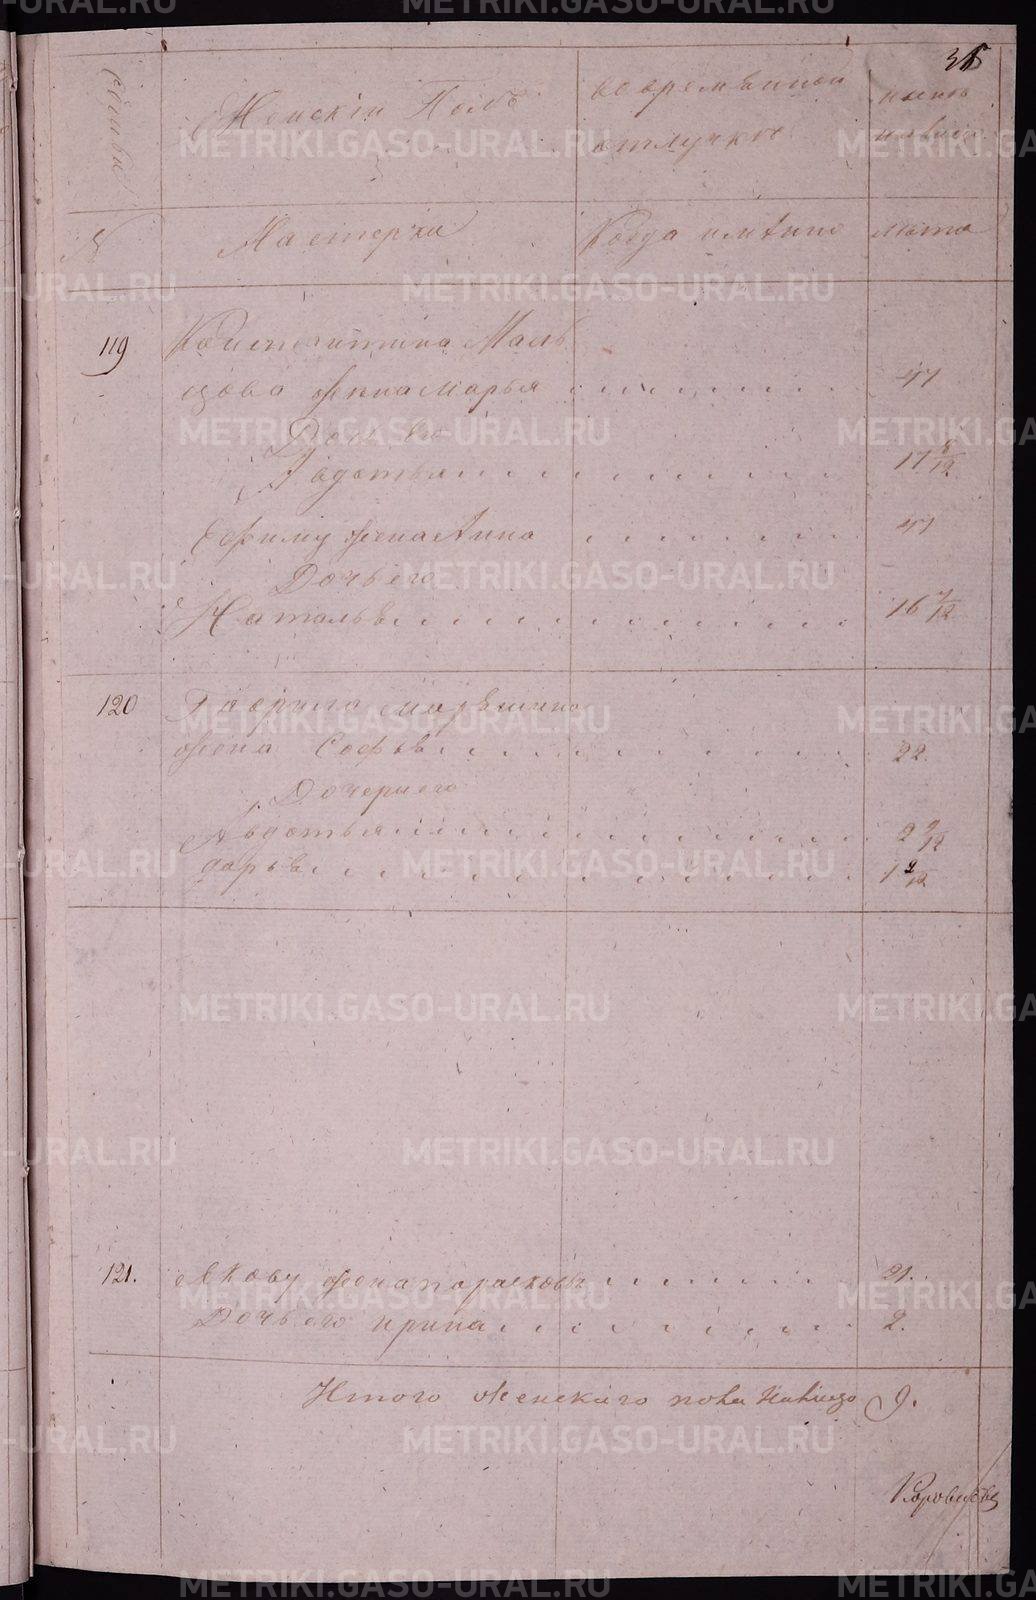 35
Семьи
Женскій Полъ
во временной
отлучке
ныне
на лицо
№
Мастерки
Когда имянно
лета
119
Константина Маль
цова жена марья 47
Дочь его
Авдотья 17 8/12
Ефиму жена Анна 47
Дочь его
Наталья 16 7/12
120
Гаврила
жена Софья 22.
Дочери его
Авдотья 2 9/12
дарья 1 9/12
121.
Якову жена парасковья 21.
Дочь его ирина 2.
Итого женского пола налицо 9.
METRIKI.GASO-URAL.RU